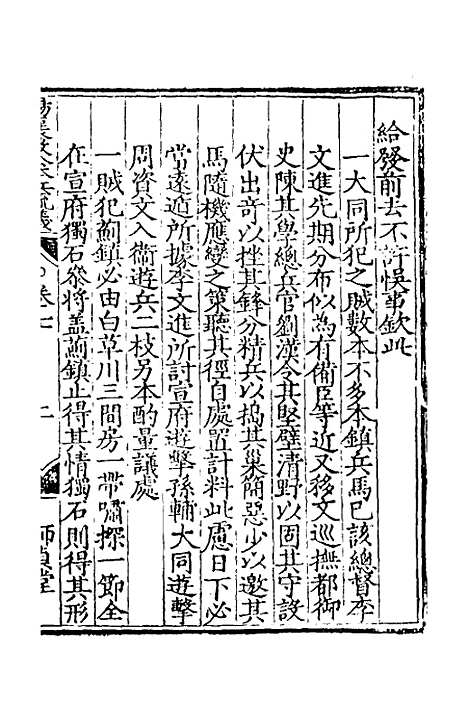 給發前去不許悞事欽此
一大同所犯之賊數本不多本鎮兵馬已該總督李
文進先期分布似為有備臣等近又移文巡撫都御
史陳其學總兵官劉漢令其堅壁清野以固其守設
伏出奇以挫其鋒分精兵以搗其巢簡惡少以邀其
馬隨機應變之策聽其徑自處置計料此慮日下必
當遠遁所據李文進所討宣府遊擊孫輔大同遊擊
周資文入衛遊兵二枝另本酌量議處
一賊犯薊鎮必由白草川三間房一帶哨探一節全
在宣府獨石叅將蓋薊鎮止得其情獨石則得其形
卷七
二
師貞堂